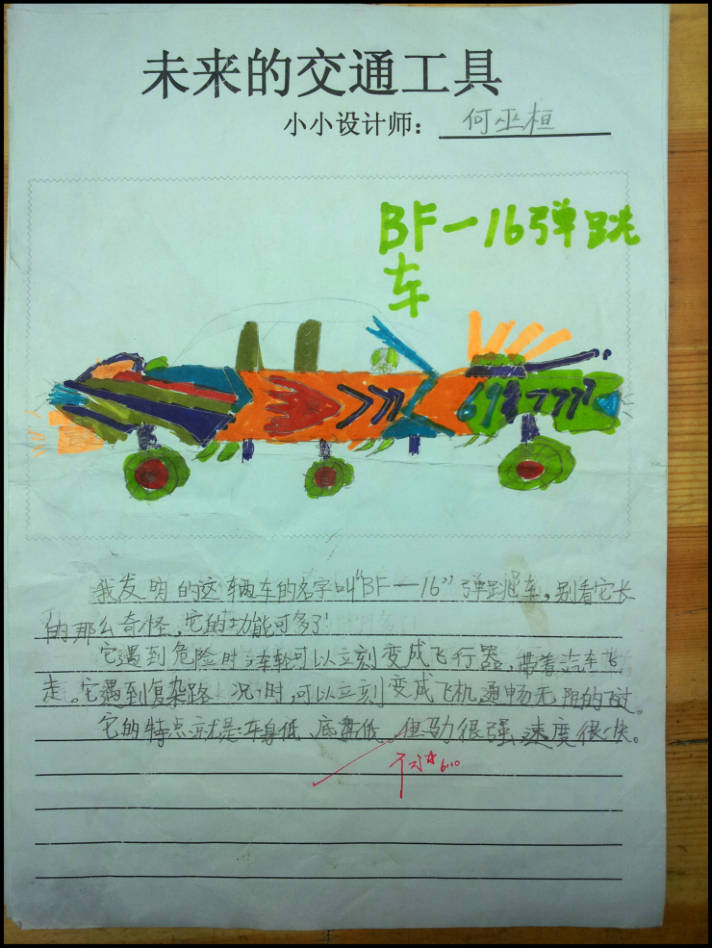 未来的交通工具
小小设计师：何巫桓
BF—16弹跳
车
698777
我发明的这辆车的名字叫“BF—16”弹跳车，别看它长
的那么奇怪，它的功能可多了！
它遇到危险时，车轮可以立刻变成飞行器，带着汽车飞
走。它遇到复杂路况时，可以立刻变成飞机通畅无阻的飞过。
它的特点就是：车身低、底盘低，但马力很强，速度很快。